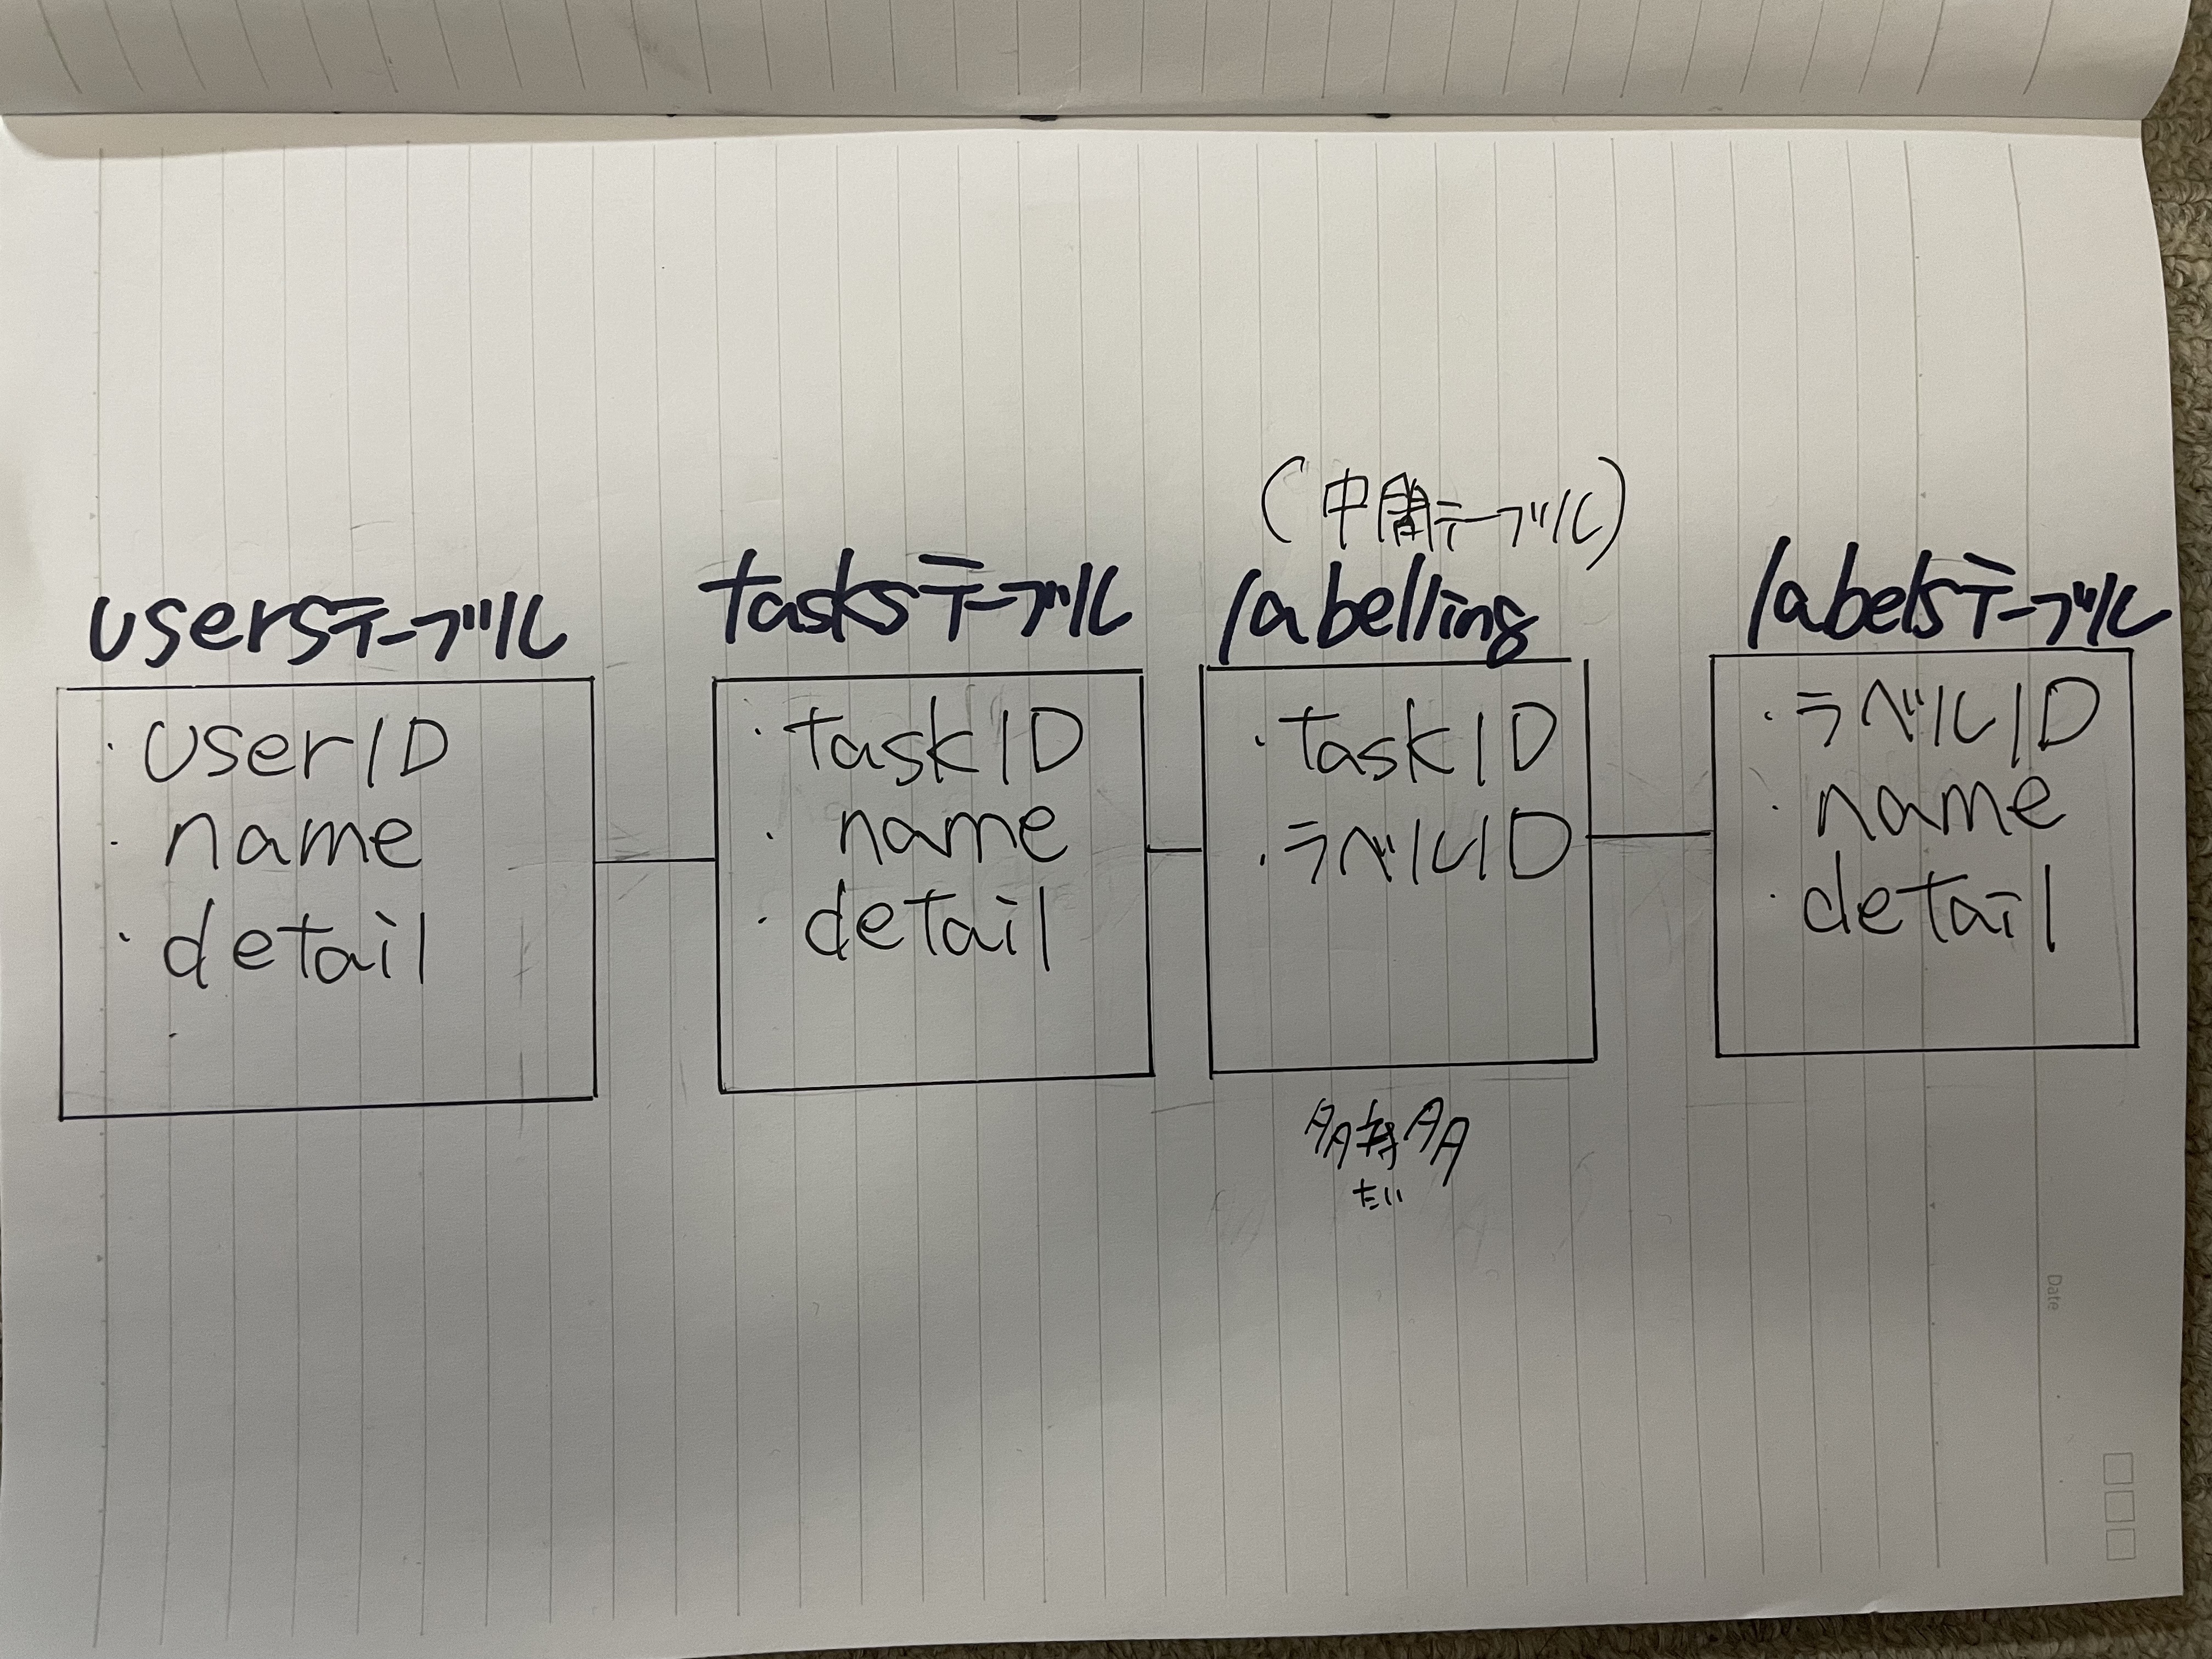 usersテーブル
・userID
・name
・detail
・
tasksテーブル
・taskID
・name
・detail
(中間テーブル)
labelling
・taskID
・ラベルID
多対多
たい
labelsテーブル
・ラベルID
・name
・detail
Date